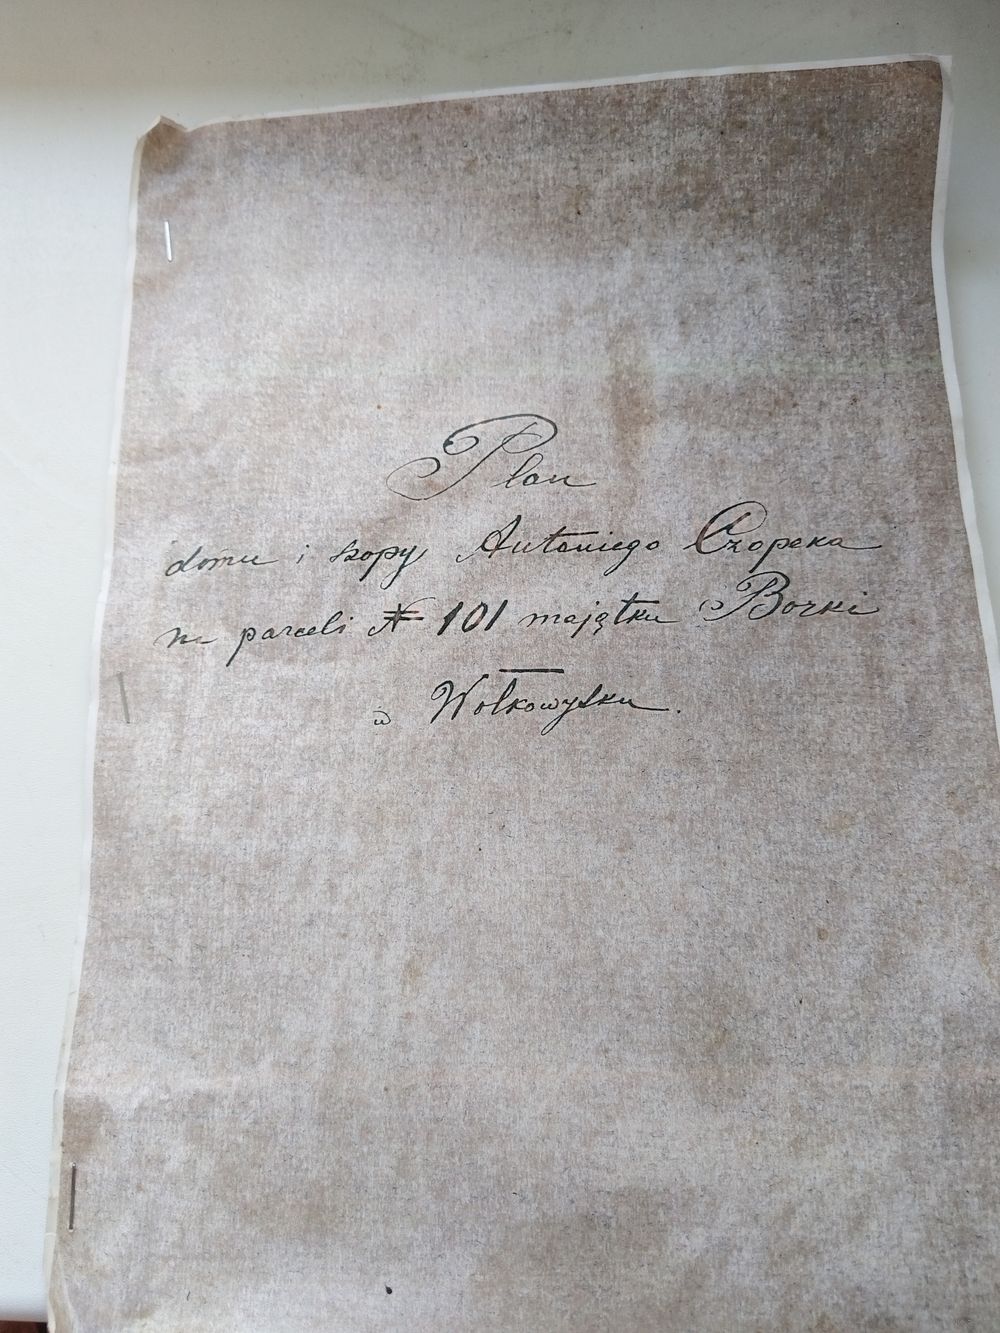 Plan
domu i szopy Antoniego Czopeka
na parceli № 101 majątku Borki
w Wołkowysku.